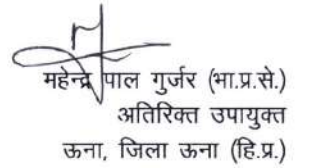 महेन्द्र पाल गुर्जर (भा.प्र.से.)
अतिरिक्त उपायुक्त
ऊना, जिला ऊना (हि.प्र.)